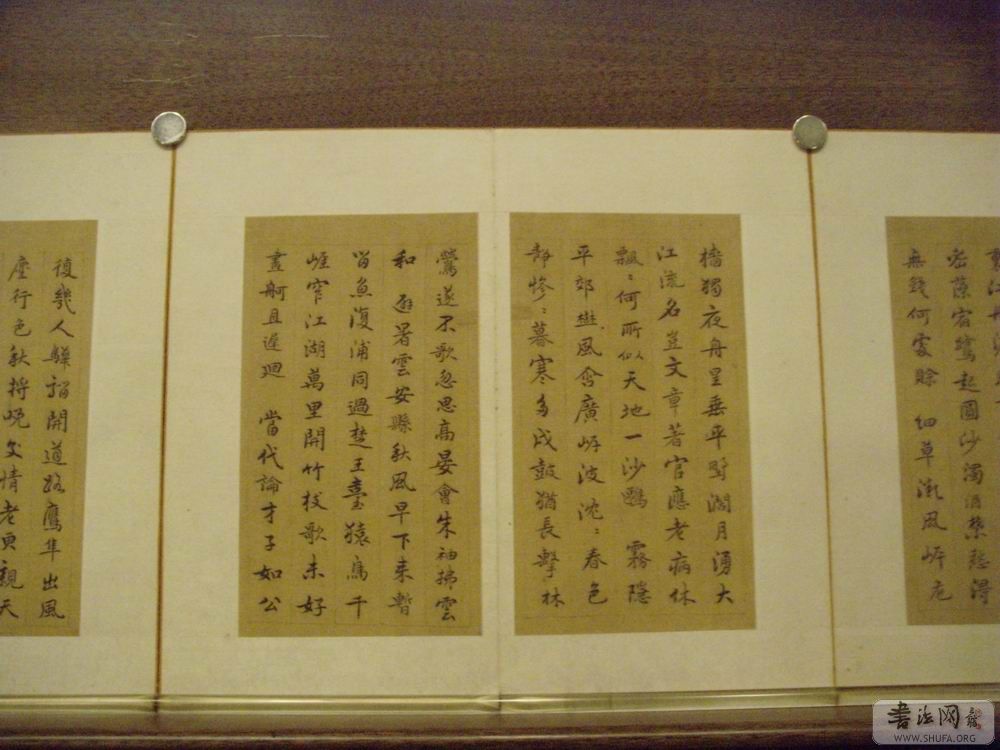 密藻宿鷺起圓沙濁酒禁愁得
無錢何處賒 細草微風岸危
檣獨夜舟星垂平野濶月湧大
江流名豈文章著官應老病休
飄〻何所似天地一沙鷗 霧隱
平郊樹風含廣岸波沈〻春色
靜慘〻暮寒多戍鼓猶長擊林
鶯遂不歌忽思高晏會朱袖拂雲
和 避暑雲安縣秋風早下來暫
留魚復浦同過楚王臺猿鳥千
崖窄江湖萬里開竹枝歌未好
畫舸且遲迴 當代論才子如公
復幾人驊騮開道路鷹隼出風
塵行色秋將晚交情老更親天
书法网
WWW.SHUFA.ORG